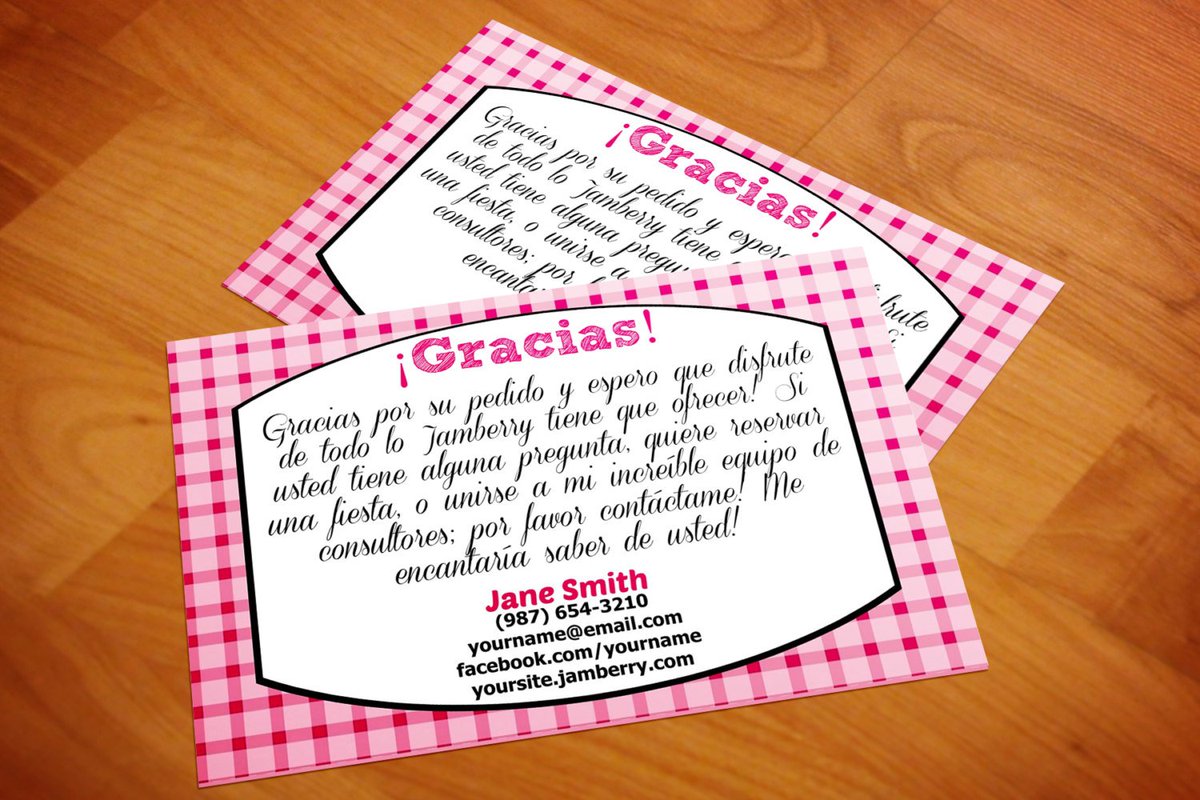 ¡Gracias!
Gracias por su pedido y espero frute
de todo lo Jamberry tiene
usted tiene alguna
una fiesta, o unirse a
consultores; por
¡Gracias!
Gracias por su pedido y espero que disfrute
de todo lo Jamberry tiene que ofrecer! Si
usted tiene alguna pregunta, quiere reservar
una fiesta, o unirse a mi increíble equipo de
consultores; por favor contáctame! Me
encantaría saber de usted!
Jane Smith
(987) 654-3210
yourname@email.com
facebook.com/yourname
yoursite.jamberry.com